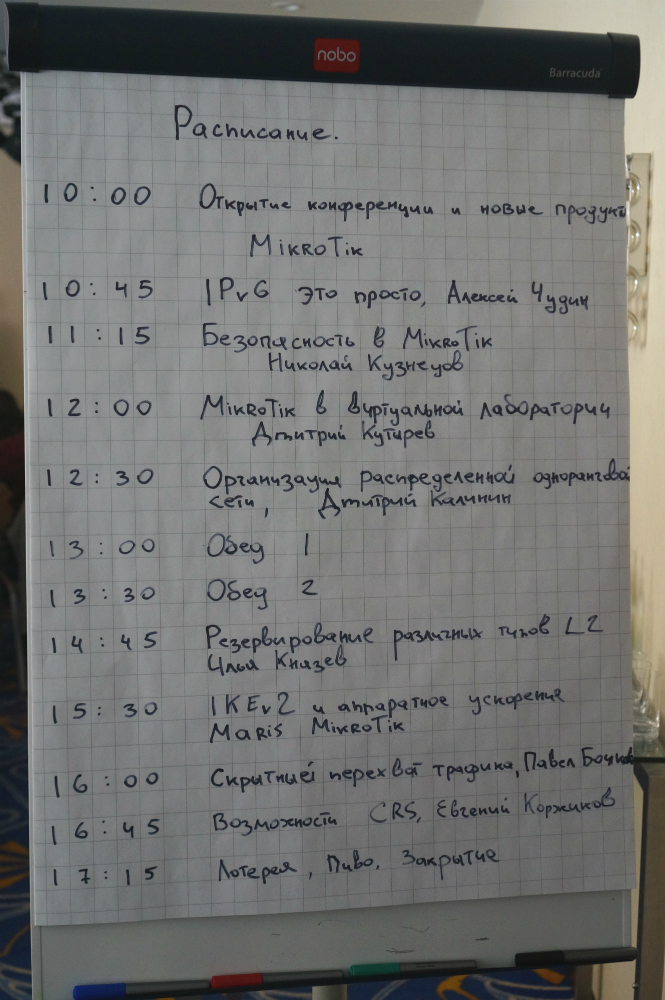 nobo
Barracuda
Расписание.
10:00 Открытие конференции и новые продукты
MikroTik
10:45 IPv6 это просто, Алексей Чудин
11:15 Безопасность в MikroTik
Николай Кузнецов
12:00 MikroTik в виртуальной лаборатории
Дмитрий Кутырев
12:30 Организация распределенной одноранговой
сети, Дмитрий Калинин
13:00 Обед 1
13:30 Обед 2
14:45 Резервирование различных типов L2
Илья Князев
15:30 IKEv2 и аппаратное ускорение
Maris MikroTik
16:00 Скрытный перехват трафика, Павел
16:45 Возможности CRS, Евгений Коржиков
17:15 Лотерея, Пиво, Закрытие